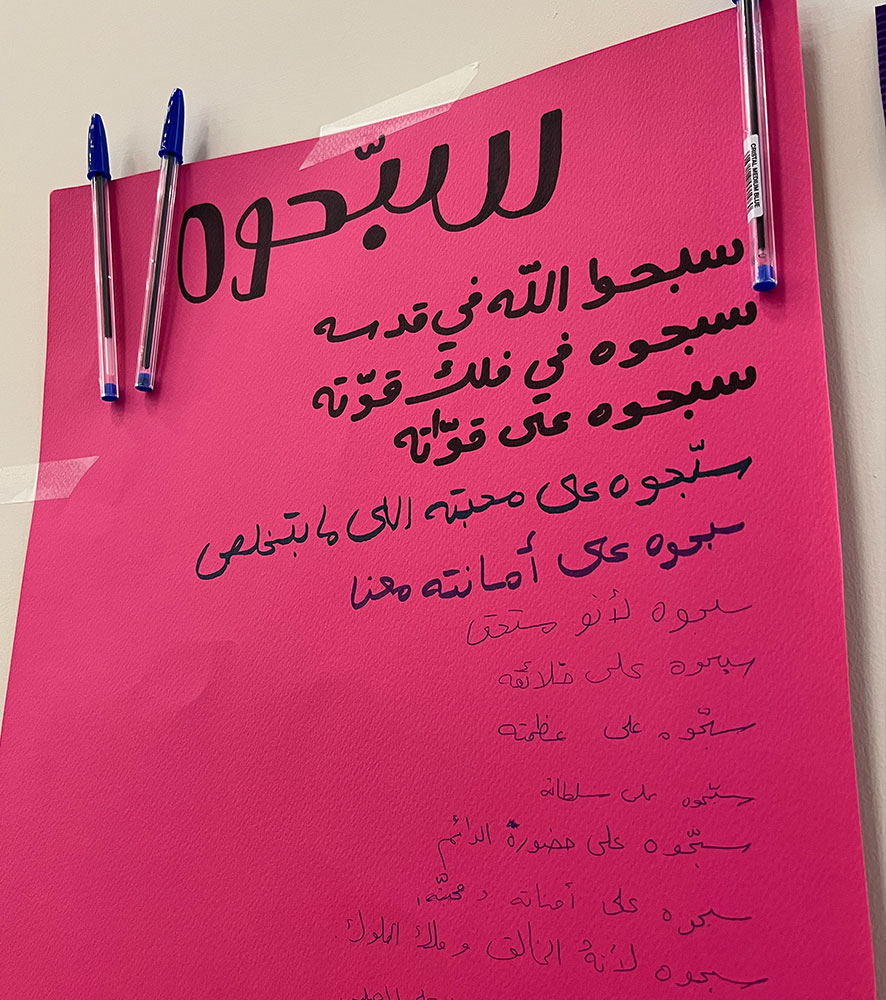 سبّحوه
سبحوا اللّه في قدسه
سبحوه في فلك قوّته
سبحوه على قوّاته
سبّحوه على محبته اللي ما بتخلص
سبحوه على أمانته معنا
سبحوه لأنو مستحق
سبحوه على خلائقه
سبّحوه على عظمته
سبّحوه على سلطانه
سبّحوه على حضوره الدائم
سبحوه على أمناته و محبتّه
سبحوه لأنهُ الخالق و ملك الملوك
CRISTAL MEDIUM BLUE